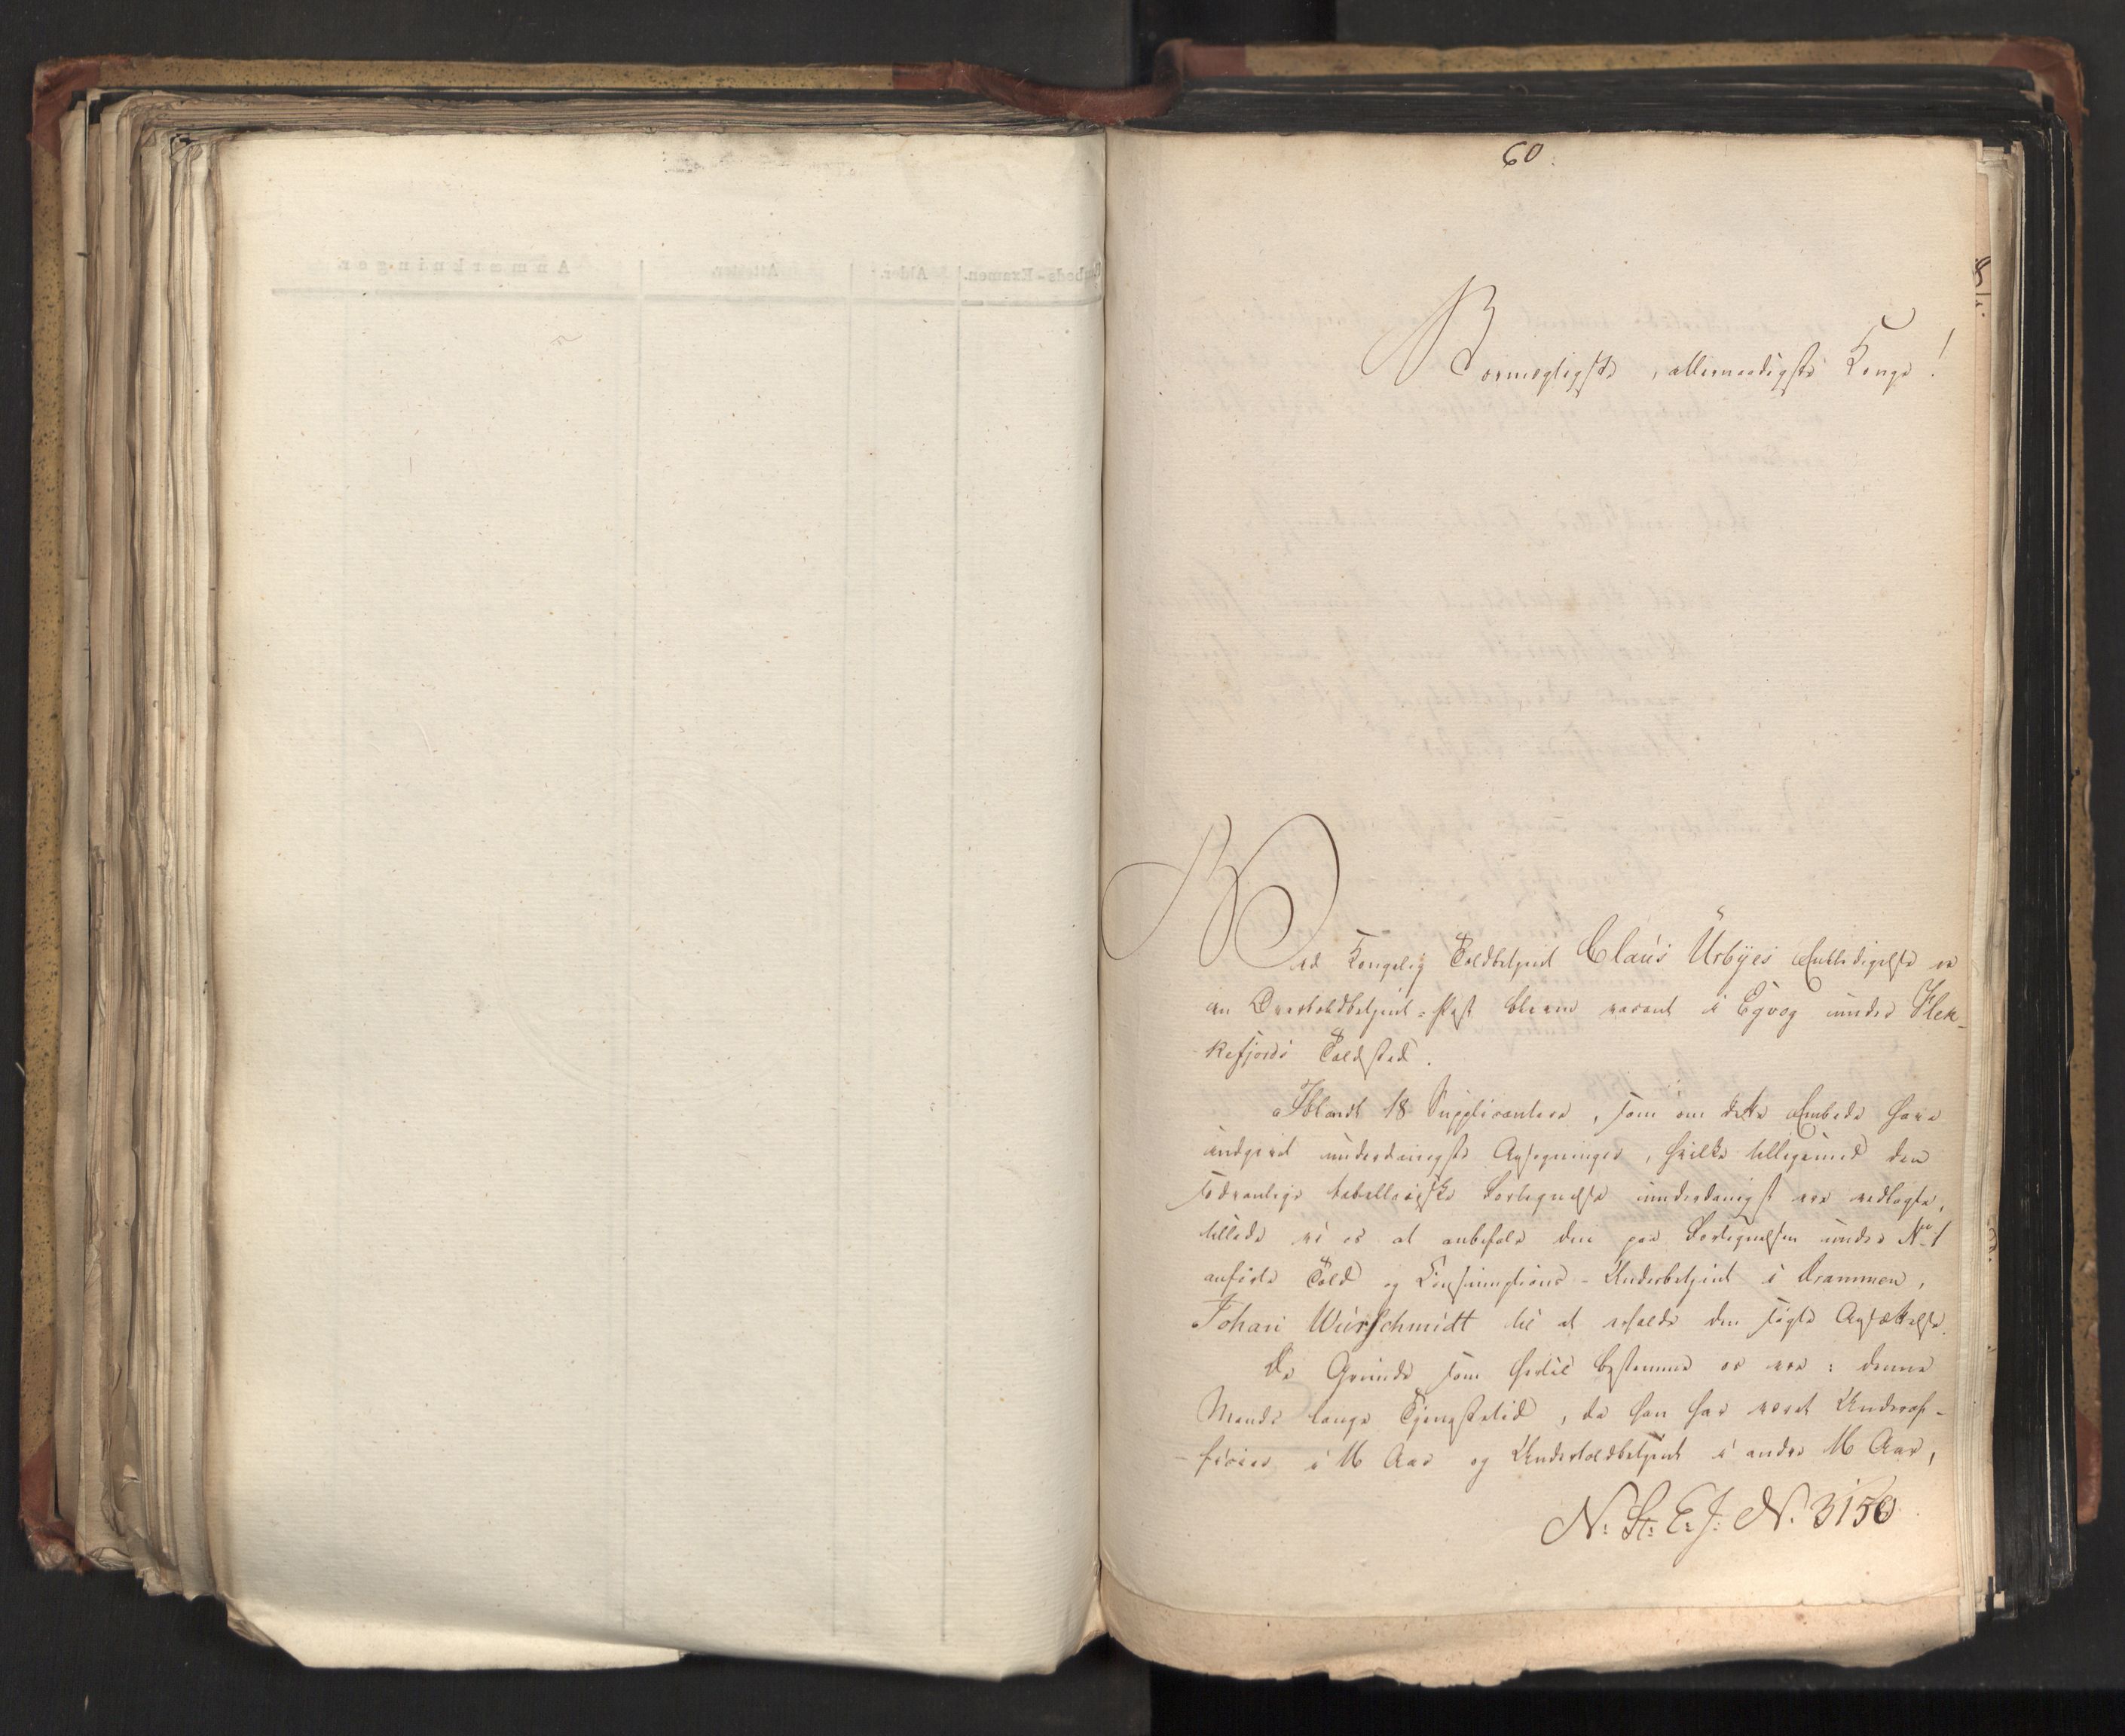 60.
Stormægtigste, allernaadigste Konge!
Ved Kongelig Toldbetjent Claus Urbyes Entledigelse er
en Overtoldbetjent-Post bleven vacant i Egvog under Flek-
kefjords Toldsted.
Iblandt 18 Supplicantere, som om dette Embede have
indgivet underdanigste Ansøgninger, hvilke tilligemed den
sædvanlige tabellariske Fortegnelse underdanigst ere vedlagte,
tillade vi os at anbefale den paa Fortegnelsen under No 1
anførte Told og Consumtions-Underbetjent i Drammen,
Johan Würschmidt til at erholde den søgte Ansættelse.
De Grunde som hertil bestemme os ere: denne
Mands lange Tjenestetid, da han har været Underof-
ficier i 16 Aar og Undertoldbetjent i andre 16 Aar,
N: St: E: J: N. 3150
Anmærkninger.
Attester.
Alder.
Embeds-Examen.